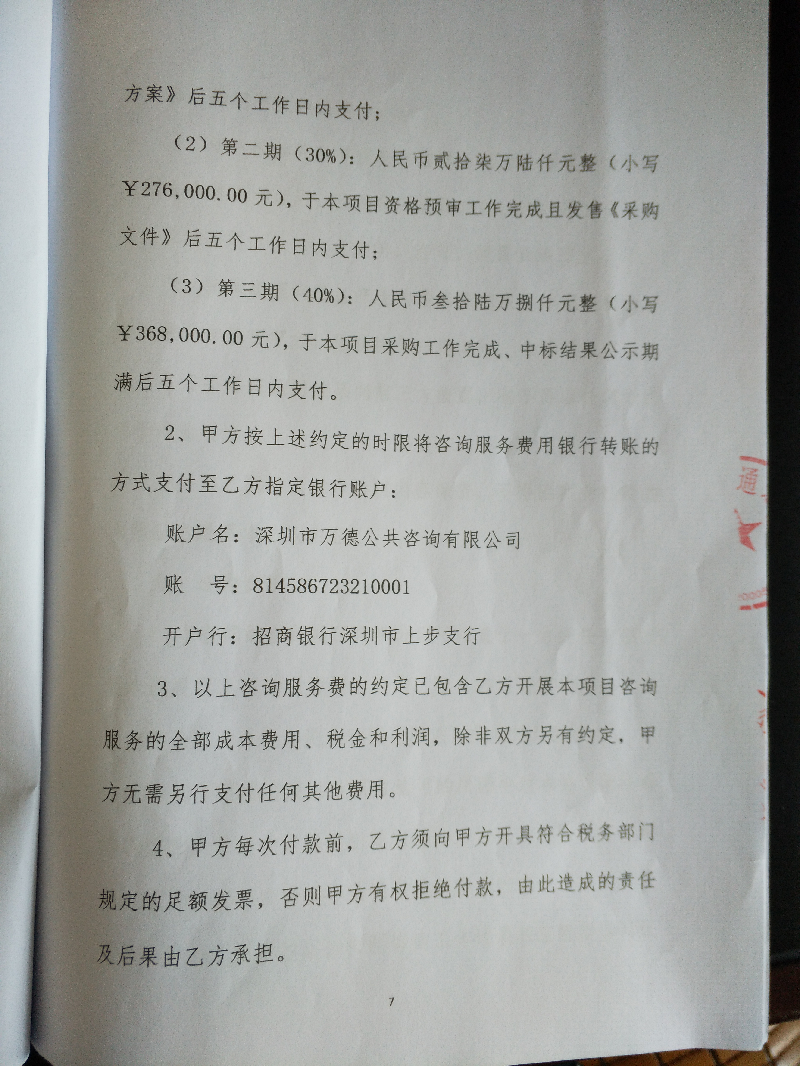 方案》后五个工作日内支付；
（2）第二期（30%）：人民币贰拾柒万陆仟元整（小写
￥276,000.00 元），于本项目资格预审工作完成且发售《采购
文件》后五个工作日内支付；
（3）第三期（40%）：人民币叁拾陆万捌仟元整（小写
￥368,000.00 元），于本项目采购工作完成、中标结果公示期
满后五个工作日内支付。
2、甲方按上述约定的时限将咨询服务费用银行转账的
方式支付至乙方指定银行账户：
账户名：深圳市万德公共咨询有限公司
账　号：814586723210001
开户行：招商银行深圳市上步支行
3、以上咨询服务费的约定已包含乙方开展本项目咨询
服务的全部成本费用、税金和利润，除非双方另有约定，甲
方无需另行支付任何其他费用。
4、甲方每次付款前，乙方须向甲方开具符合税务部门
规定的足额发票，否则甲方有权拒绝付款，由此造成的责任
及后果由乙方承担。
7
通